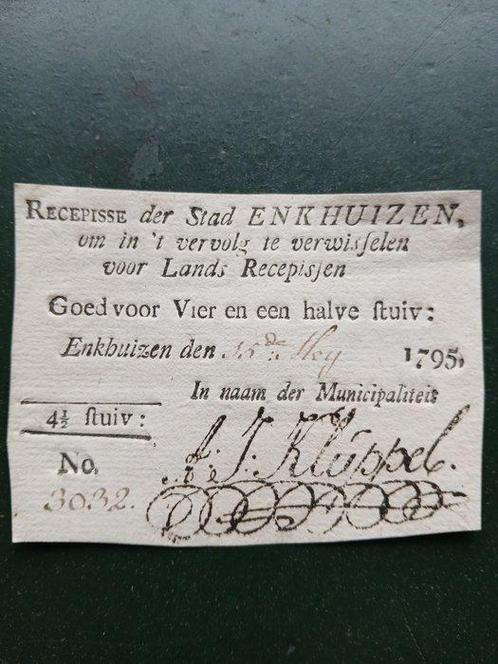 RECEPISSE der Stad ENKHUIZEN,
om in 't vervolg te verwiſſelen
voor Lands Recepiſſen
Goed voor VIER en een halve ſtuiv:
Enkhuizen den Mey 1795,
In naam der Municipaliteit
4½ ſtuiv:
A: J: Kluppel.
No.
3032.